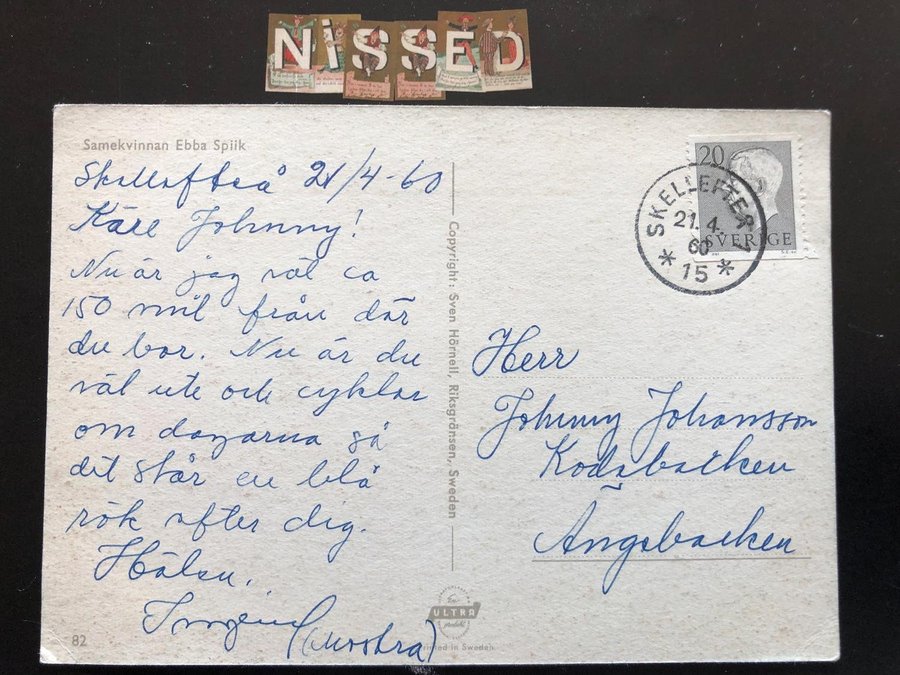 NiSSED
Samekvinnan Ebba Spiik
Skellefteå 21/4-60
Käre Johnny!
Nu är jag väl ca
150 mil från där
du bor. Nu är du
väl ute och cyklar
om dagarna så
det står en blå
rök efter dig.
Hälsn.
(mostra)
82
Copyright: Sven Hörnell, Riksgränsen, Sweden
ULTRA
produkt
Printed in Sweden
20
SVERIGE
SKELLEFTEÅ 1
21. 4.
60
* 15 *
Herr
Johnny Johansson
Kodabacken
Ängabacken